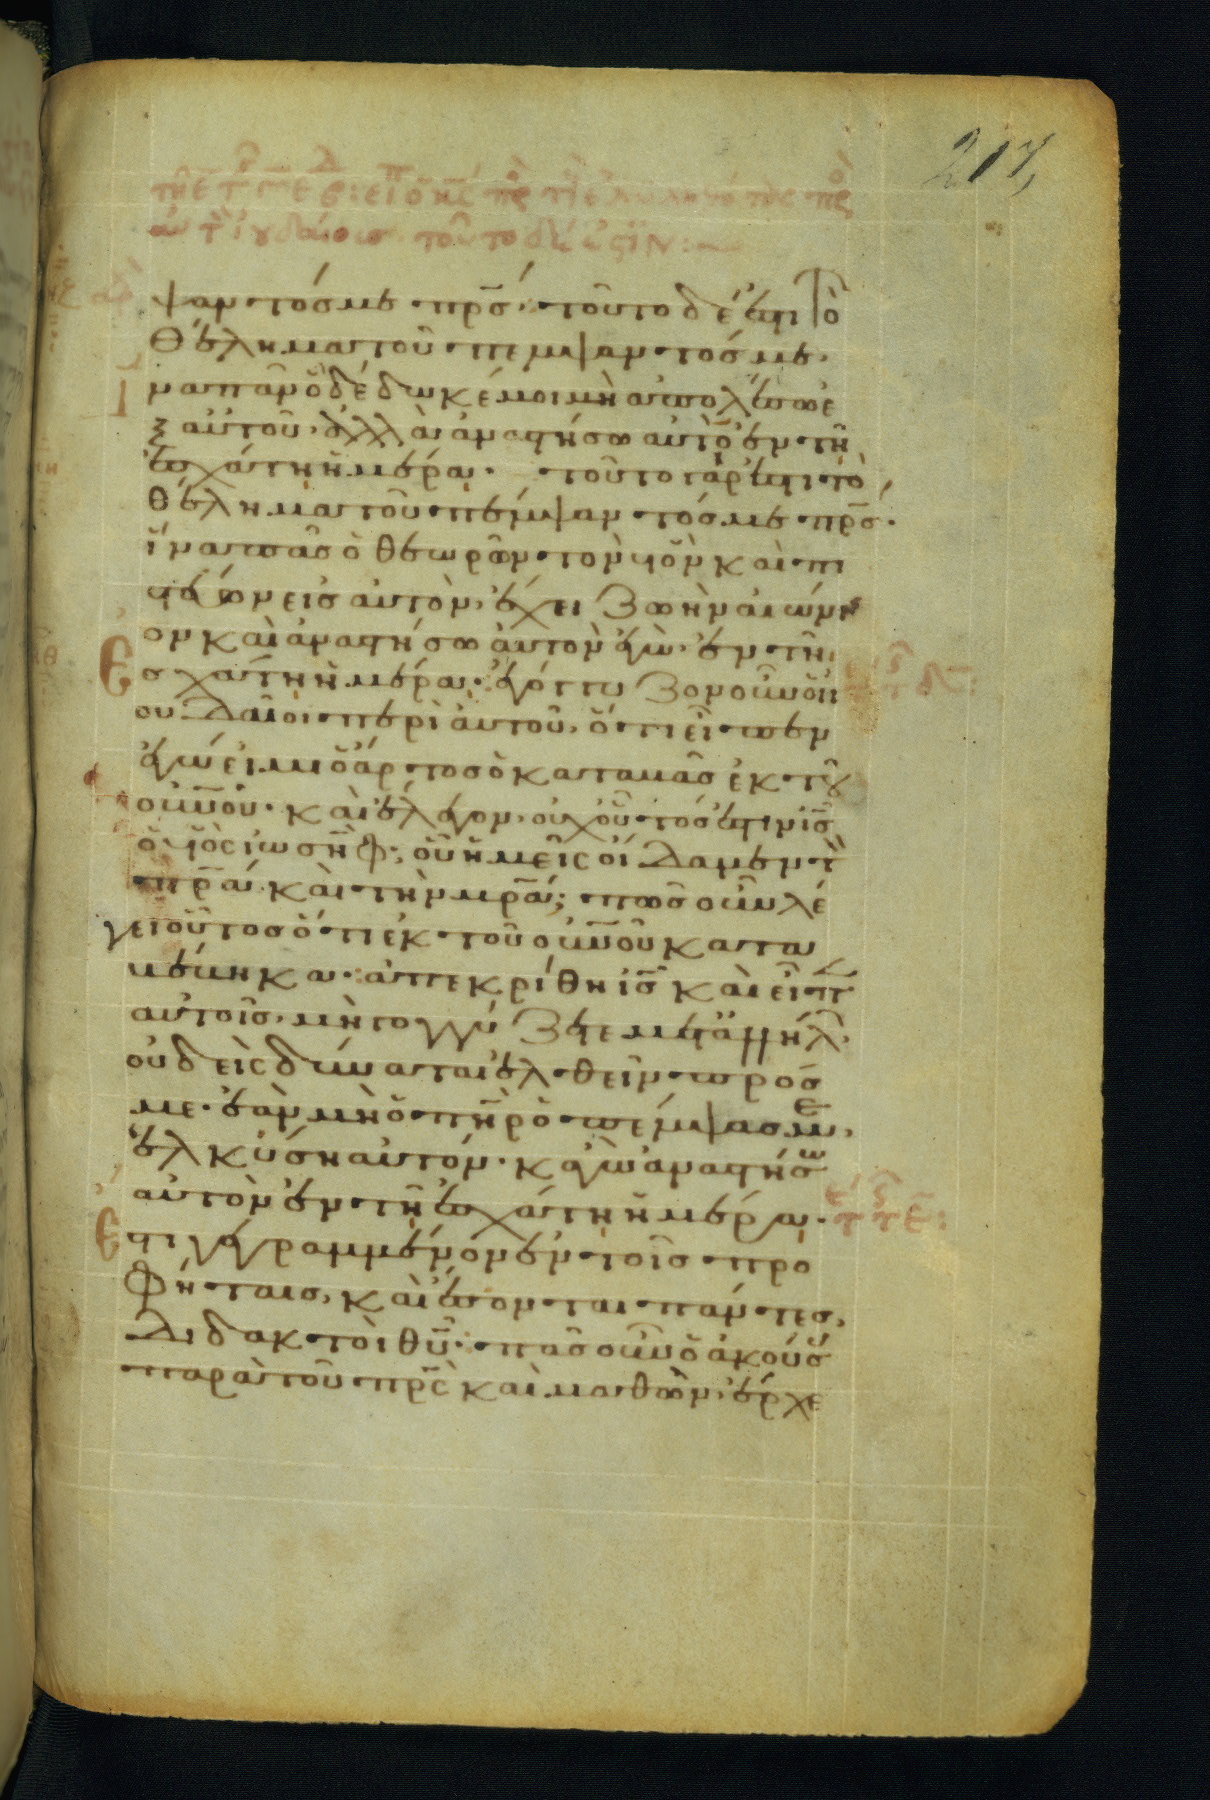 217,
ψαντός με πρς· τοῦτο δέ ἐστι τὸ
θέλημα τοῦ πέμψαντός με·
ἵνα πᾶν ὃ δέδωκέ μοι μὴ ἀπολέσω ἐ
ξ αὐτοῦ· ἀλλὰ ἀναστήσω αὐτὸ ἐν τῆ
ἐσχάτῃ ἡμέρα· τοῦτο γάρ ἐστι τὸ
θέλημα τοῦ πέμψαντός με πρς·
ἵνα πᾶς ὁ θεωρῶν τὸν υἱὸν καὶ πι
στεύων εἰς αὐτὸν, ἔχει ζωὴν αἰώνι
ον καὶ ἀναστήσω αὐτὸν ἐγὼ ἐν τῆ ἐ
σχάτη ἡμέρα· ἐγόγγυζον οὖν οἱ ἰ
ουδαῖοι περὶ αὐτοῦ, ὅτι εἶπεν
ἐγώ εἰμι ὁ ἄρτος ὁ καταβὰς ἐκ τοῦ
οὐνοῦ· καὶ ἔλεγον, οὐχ οὗτός ἐστιν ις
ὁ υἱὸς ἰωσὴφ; οὗ ἡμεῖς οἴδαμεν τὸν
πρα καὶ τὴν μρα; πῶς οὖν λέ
γει οὗτος ὅτι ἐκ τοῦ οὐνοῦ κατα
βέβηκα· ἀπεκρίθη ις καὶ εἶπεν
αὐτοῖς, μὴ γογγύζετε μετ' ἀλλήλων·
οὐδεὶς δύναται ἐλθεῖν πρός
με· ἐὰν μὴ ὁ πηρ ὁ πέμψας με,
ἑλκύση αὐτόν· κἀγὼ ἀναστήσω
αὐτὸν ἐν τῆ ἐσχάτῃ ἡμέρα·
ἔστι γεγραμμένον ἐν τοῖς προ
φήταις, καὶ ἔσονται πάντες,
διδακτοὶ θυ· πᾶς οὖν ὁ ἀκούσας
παρὰ τοῦ πρς καὶ μαθὼν, ἔρχε